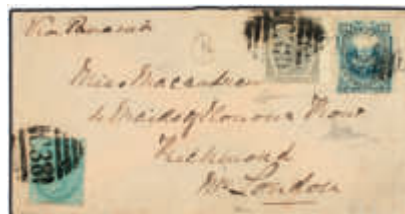 Via Panama
Miss Macandrew
4 Maids of Honour Row
Richmond
Nr. London
C38